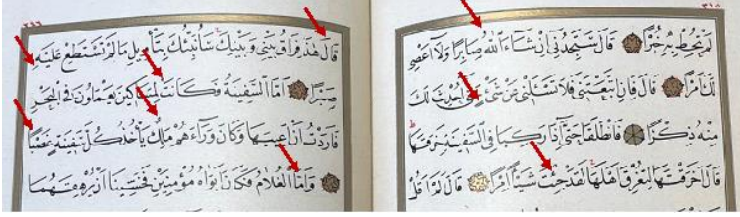 لَمْ تُحِطْ بِهِ خُبْرًا قَالَ سَتَجِدُنِي اِنْ شَاءَ اللهُ صَابِرًا وَلَا اَعْصِي
لَكَ اَمْرًا قَالَ فَاِنِ اتَّبَعْتَنِي فَلَا تَسْئَلْنِي عَنْ شَيْءٍ حَتَّى اُحْدِثَ لَكَ
مِنْهُ ذِكْرًا فَانْطَلَقَا حَتَّى اِذَا رَكِبَا فِي السَّفِينَةِ خَرَقَهَا
قَالَ اَخَرَقْتَهَا لِتُغْرِقَ اَهْلَهَا لَقَدْ جِئْتَ شَيْئًا اِمْرًا قَالَ اَلَمْ اَقُلْ
قَالَ هٰذَا فِرَاقُ بَيْنِي وَبَيْنِكَ سَاُنَبِّئُكَ بِتَأْوِيلِ مَا لَمْ تَسْتَطِعْ عَلَيْهِ
صَبْرًا اَمَّا السَّفِينَةُ فَكَانَتْ لِمَسَاكِينَ يَعْمَلُونَ فِي الْبَحْرِ
فَاَرَدْتُ اَنْ اَعِيبَهَا وَكَانَ وَرَاءَهُمْ مَلِكٌ يَأْخُذُ كُلَّ سَفِينَةٍ غَصْبًا
وَاَمَّا الْغُلَامُ فَكَانَ اَبَوَاهُ مُؤْمِنَيْنِ فَخَشِينَا اَنْ يُرْهِقَهُمَا